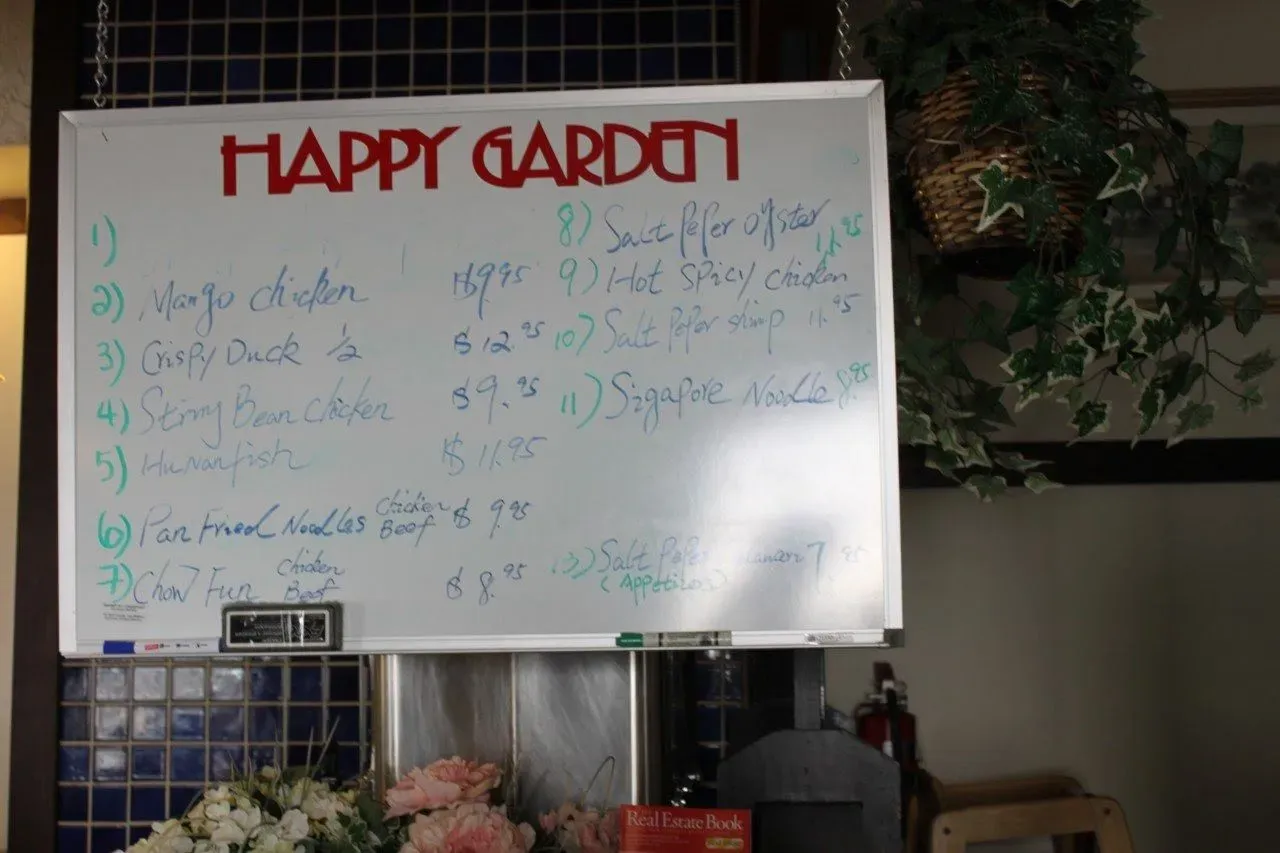 HAPPY GARDEN
1)
2) Mango chicken $9.95
3) Crispy Duck 1/2 $12.95
4) String Bean chicken $9.95
5) Hunan fish $11.95
6) Pan Fried Noodles Chicken Beef $9.95
7) Chow Fun Chicken Beef $8.95
8) Salt Peper Oyster 11.95
9) Hot Spicy chicken
10) Salt Peper shimp 11.95
11) Sigapore Noodle 8.95
13) Salt Peper 7.95
(Appetizos)
Real Estate Book